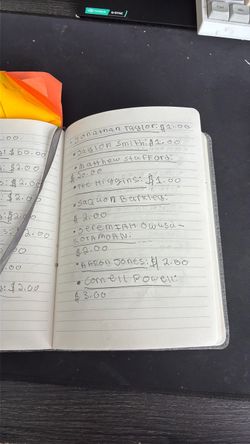 .00
: $50.00
.00
: $2.00
$2.00
: $2.00
: $2.00
.00
: $2.00
• Jonathan Taylor: $2.00
• Jaylon Smith: $2.00
• Matthew Stafford:
$20.00
• Tee Higgins: $1.00
• Saquon Barkley:
$2.00
• Jeremiah Owusu-
Koramoah:
$2.00
• Aaron Jones: $2.00
• Cornell Powell:
$3.00